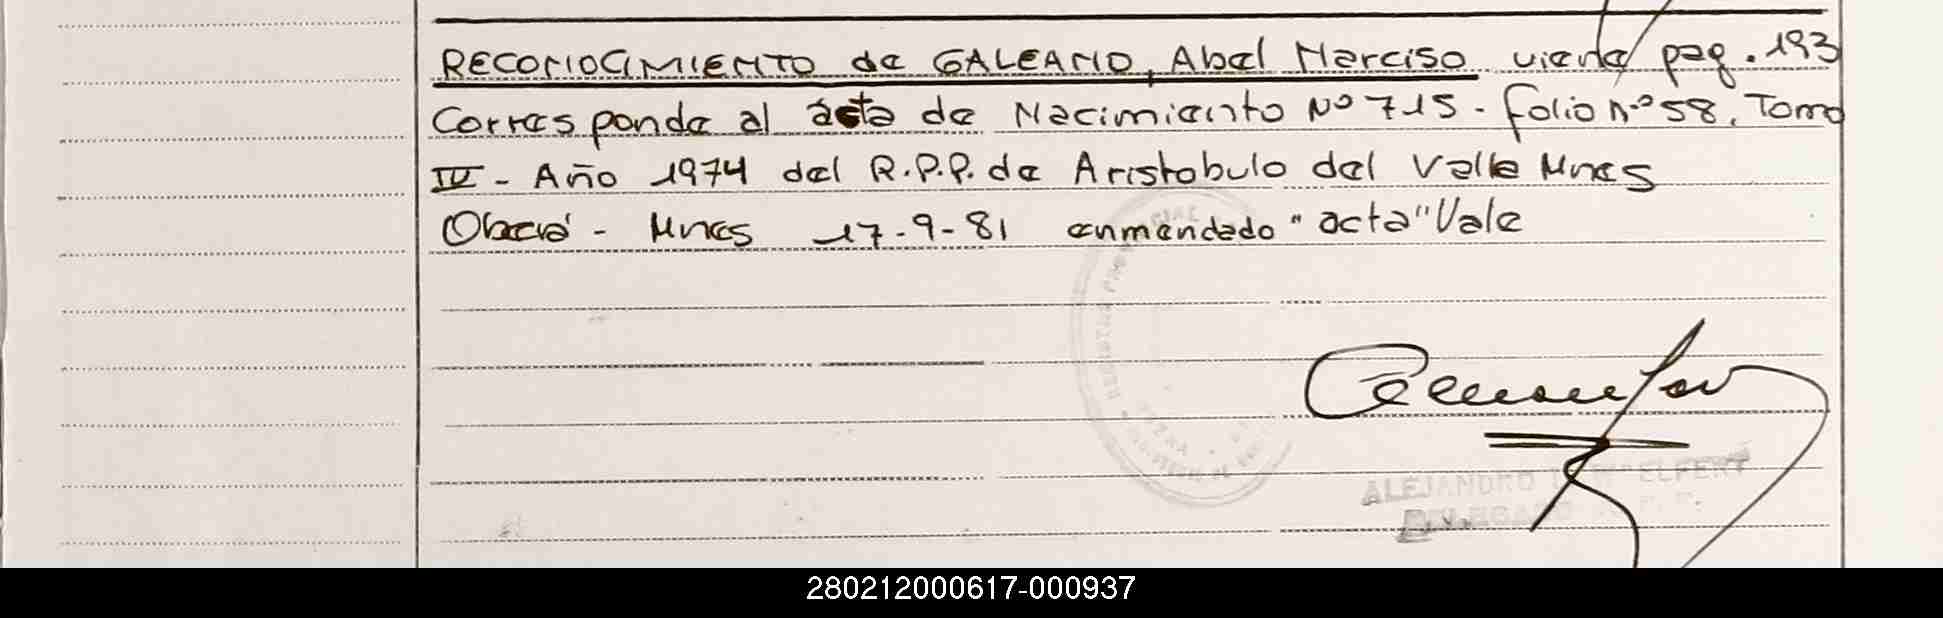 RECONOCIMIENTO de GALEANO, Abel Narciso viene pag. 193
Corresponde al acta de Nacimiento Nº 715 - folio nº 58, Tomo
IV - Año 1974 del R.P.P. de Aristobulo del Valle Mnes
Oberá - Mnes 17-9-81 enmendado "acta" Vale
ALEJANDRO
DELEGADO
280212000617-000937